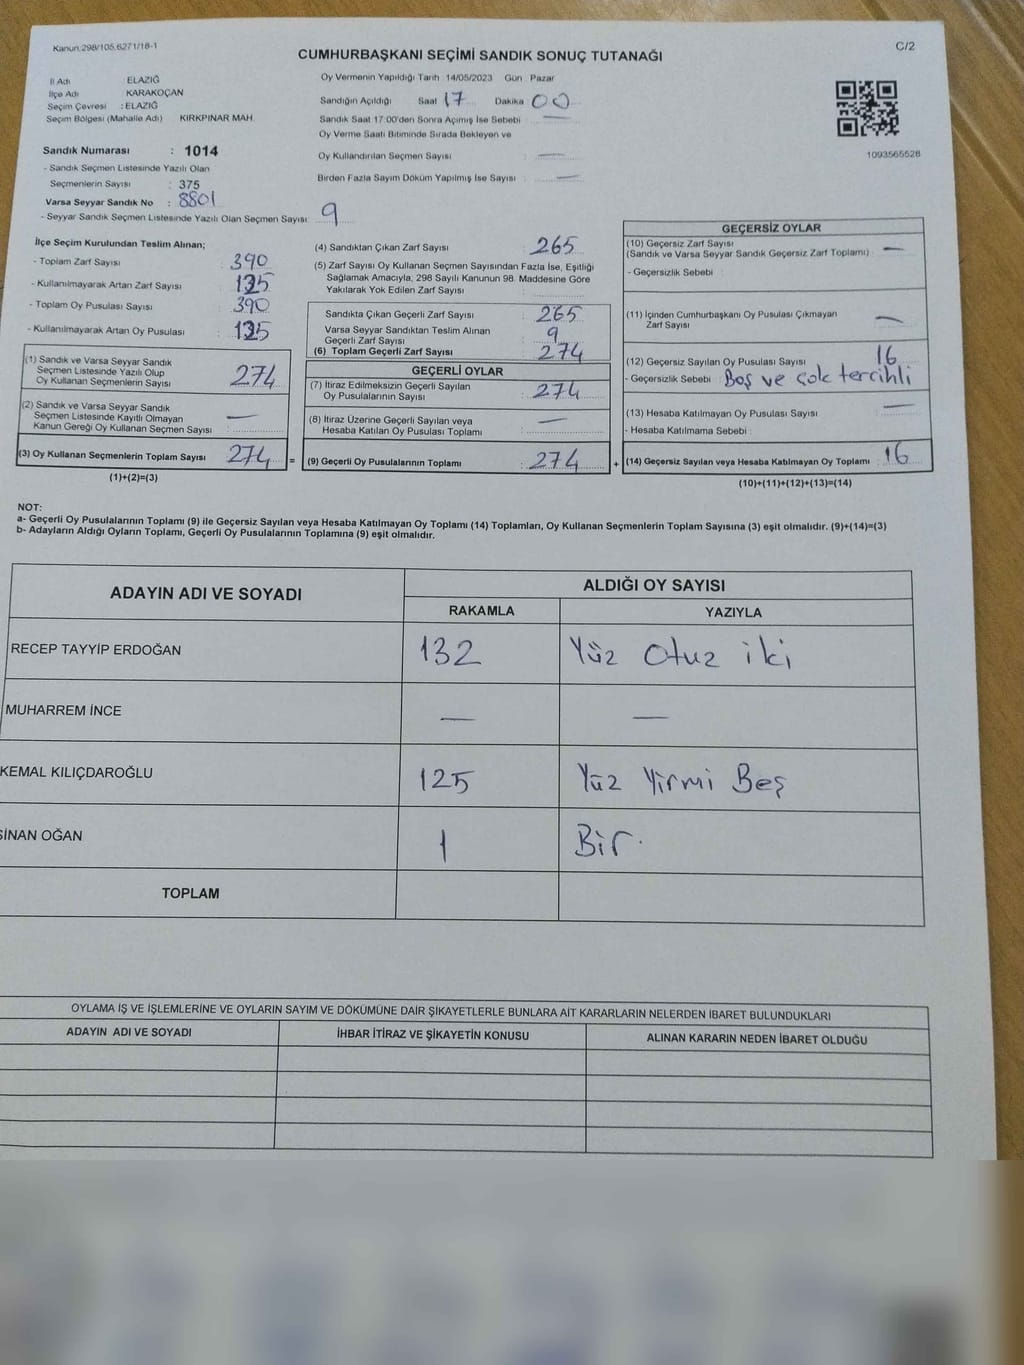 Kanun.298/105.6271/18-1
C/2
CUMHURBAŞKANI SEÇİMİ SANDIK SONUÇ TUTANAĞI
İl Adı : ELAZIĞ
İlçe Adı : KARAKOÇAN
Seçim Çevresi : ELAZIĞ
Seçim Bölgesi (Mahalle Adı) KIRKPINAR MAH.
Oy Vermenin Yapıldığı Tarih : 14/05/2023 Gün : Pazar
Sandığın Açıldığı Saat 17 Dakika 00
Sandık Saat 17:00'den Sonra Açımış İse Sebebi : —
Oy Verme Saati Bitiminde Sırada Bekleyen ve
Oy Kullandırılan Seçmen Sayısı : —
Birden Fazla Sayım Döküm Yapılmış İse Sayısı : —
1093565528
Sandık Numarası : 1014
- Sandık Seçmen Listesinde Yazılı Olan
Seçmenlerin Sayısı : 375
Varsa Seyyar Sandık No : 8801
- Seyyar Sandık Seçmen Listesinde Yazılı Olan Seçmen Sayısı: 9
İlçe Seçim Kurulundan Teslim Alınan;
- Toplam Zarf Sayısı : 390
- Kullanılmayarak Artan Zarf Sayısı : 125
- Toplam Oy Pusulası Sayısı : 390
- Kullanılmayarak Artan Oy Pusulası : 125
(1) Sandık ve Varsa Seyyar Sandık
Seçmen Listesinde Yazılı Olup
Oy Kullanan Seçmenlerin Sayısı : 274
(2) Sandık ve Varsa Seyyar Sandık
Seçmen Listesinde Kayıtlı Olmayan
Kanun Gereği Oy Kullanan Seçmen Sayısı : —
(3) Oy Kullanan Seçmenlerin Toplam Sayısı : 274 =
(1)+(2)=(3)
(4) Sandıktan Çıkan Zarf Sayısı : 265
(5) Zarf Sayısı Oy Kullanan Seçmen Sayısından Fazla İse, Eşitliği
Sağlamak Amacıyla, 298 Sayılı Kanunun 98. Maddesine Göre
Yakılarak Yok Edilen Zarf Sayısı :
Sandıkta Çıkan Geçerli Zarf Sayısı : 265
Varsa Seyyar Sandıktan Teslim Alınan
Geçerli Zarf Sayısı : 9
(6) Toplam Geçerli Zarf Sayısı : 274
GEÇERLİ OYLAR
(7) İtiraz Edilmeksizin Geçerli Sayılan
Oy Pusulalarının Sayısı : 274
(8) İtiraz Üzerine Geçerli Sayılan veya
Hesaba Katılan Oy Pusulası Toplamı : —
(9) Geçerli Oy Pusulalarının Toplamı : 274 +
GEÇERSİZ OYLAR
(10) Geçersiz Zarf Sayısı
(Sandık ve Varsa Seyyar Sandık Geçersiz Zarf Toplamı) : —
- Geçersizlik Sebebi :
(11) İçinden Cumhurbaşkanı Oy Pusulası Çıkmayan
Zarf Sayısı : —
(12) Geçersiz Sayılan Oy Pusulası Sayısı : 16
- Geçersizlik Sebebi : Boş ve çok tercihli
(13) Hesaba Katılmayan Oy Pusulası Sayısı : —
- Hesaba Katılmama Sebebi :
(14) Geçersiz Sayılan veya Hesaba Katılmayan Oy Toplamı : 16
(10)+(11)+(12)+(13)=(14)
NOT:
a- Geçerli Oy Pusulalarının Toplamı (9) ile Geçersiz Sayılan veya Hesaba Katılmayan Oy Toplamı (14) Toplamları, Oy Kullanan Seçmenlerin Toplam Sayısına (3) eşit olmalıdır. (9)+(14)=(3)
b- Adayların Aldığı Oyların Toplamı, Geçerli Oy Pusulalarının Toplamına (9) eşit olmalıdır.
ADAYIN ADI VE SOYADI
ALDIĞI OY SAYISI
RAKAMLA YAZIYLA
RECEP TAYYİP ERDOĞAN 132 Yüz Otuz iki
MUHARREM İNCE — —
KEMAL KILIÇDAROĞLU 125 Yüz Yirmi Beş
SİNAN OĞAN 1 Bir
TOPLAM
OYLAMA İŞ VE İŞLEMLERİNE VE OYLARIN SAYIM VE DÖKÜMÜNE DAİR ŞİKAYETLERLE BUNLARA AİT KARARLARIN NELERDEN İBARET BULUNDUKLARI
ADAYIN ADI VE SOYADI İHBAR İTİRAZ VE ŞİKAYETİN KONUSU ALINAN KARARIN NEDEN İBARET OLDUĞU